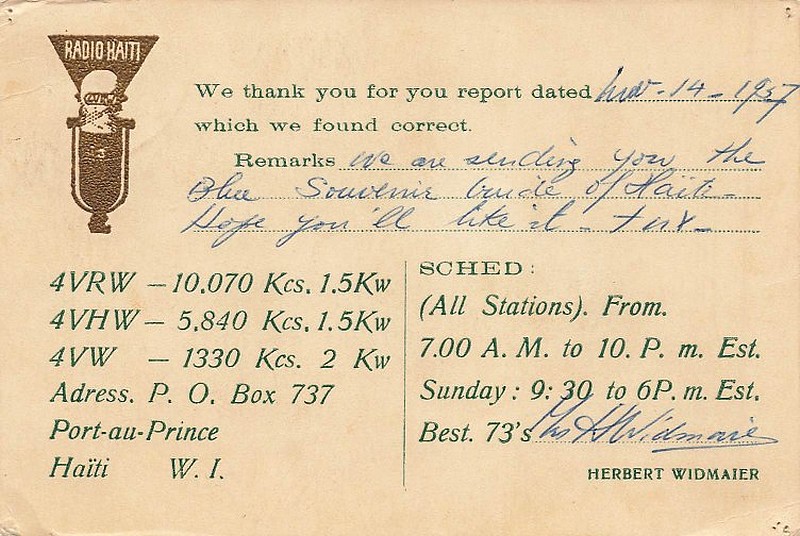 RADIO HAITI
4VRW
We thank you for you report dated Nov-14-1957
which we found correct.
Remarks We are sending you the
Blue Souvenir Guide of Haïti-
Hope you'll like it - tnx-
4VRW — 10.070 Kcs. 1.5Kw
4VHW — 5.840 Kcs. 1.5Kw
4VW — 1330 Kcs. 2 Kw
Adress. P. O. Box 737
Port-au-Prince
Haïti W. I.
SCHED :
(All Stations). From.
7.00 A. M. to 10. P. m. Est.
Sunday : 9: 30 to 6P. m. Est.
Best. 73's H Widmaier
HERBERT WIDMAIER